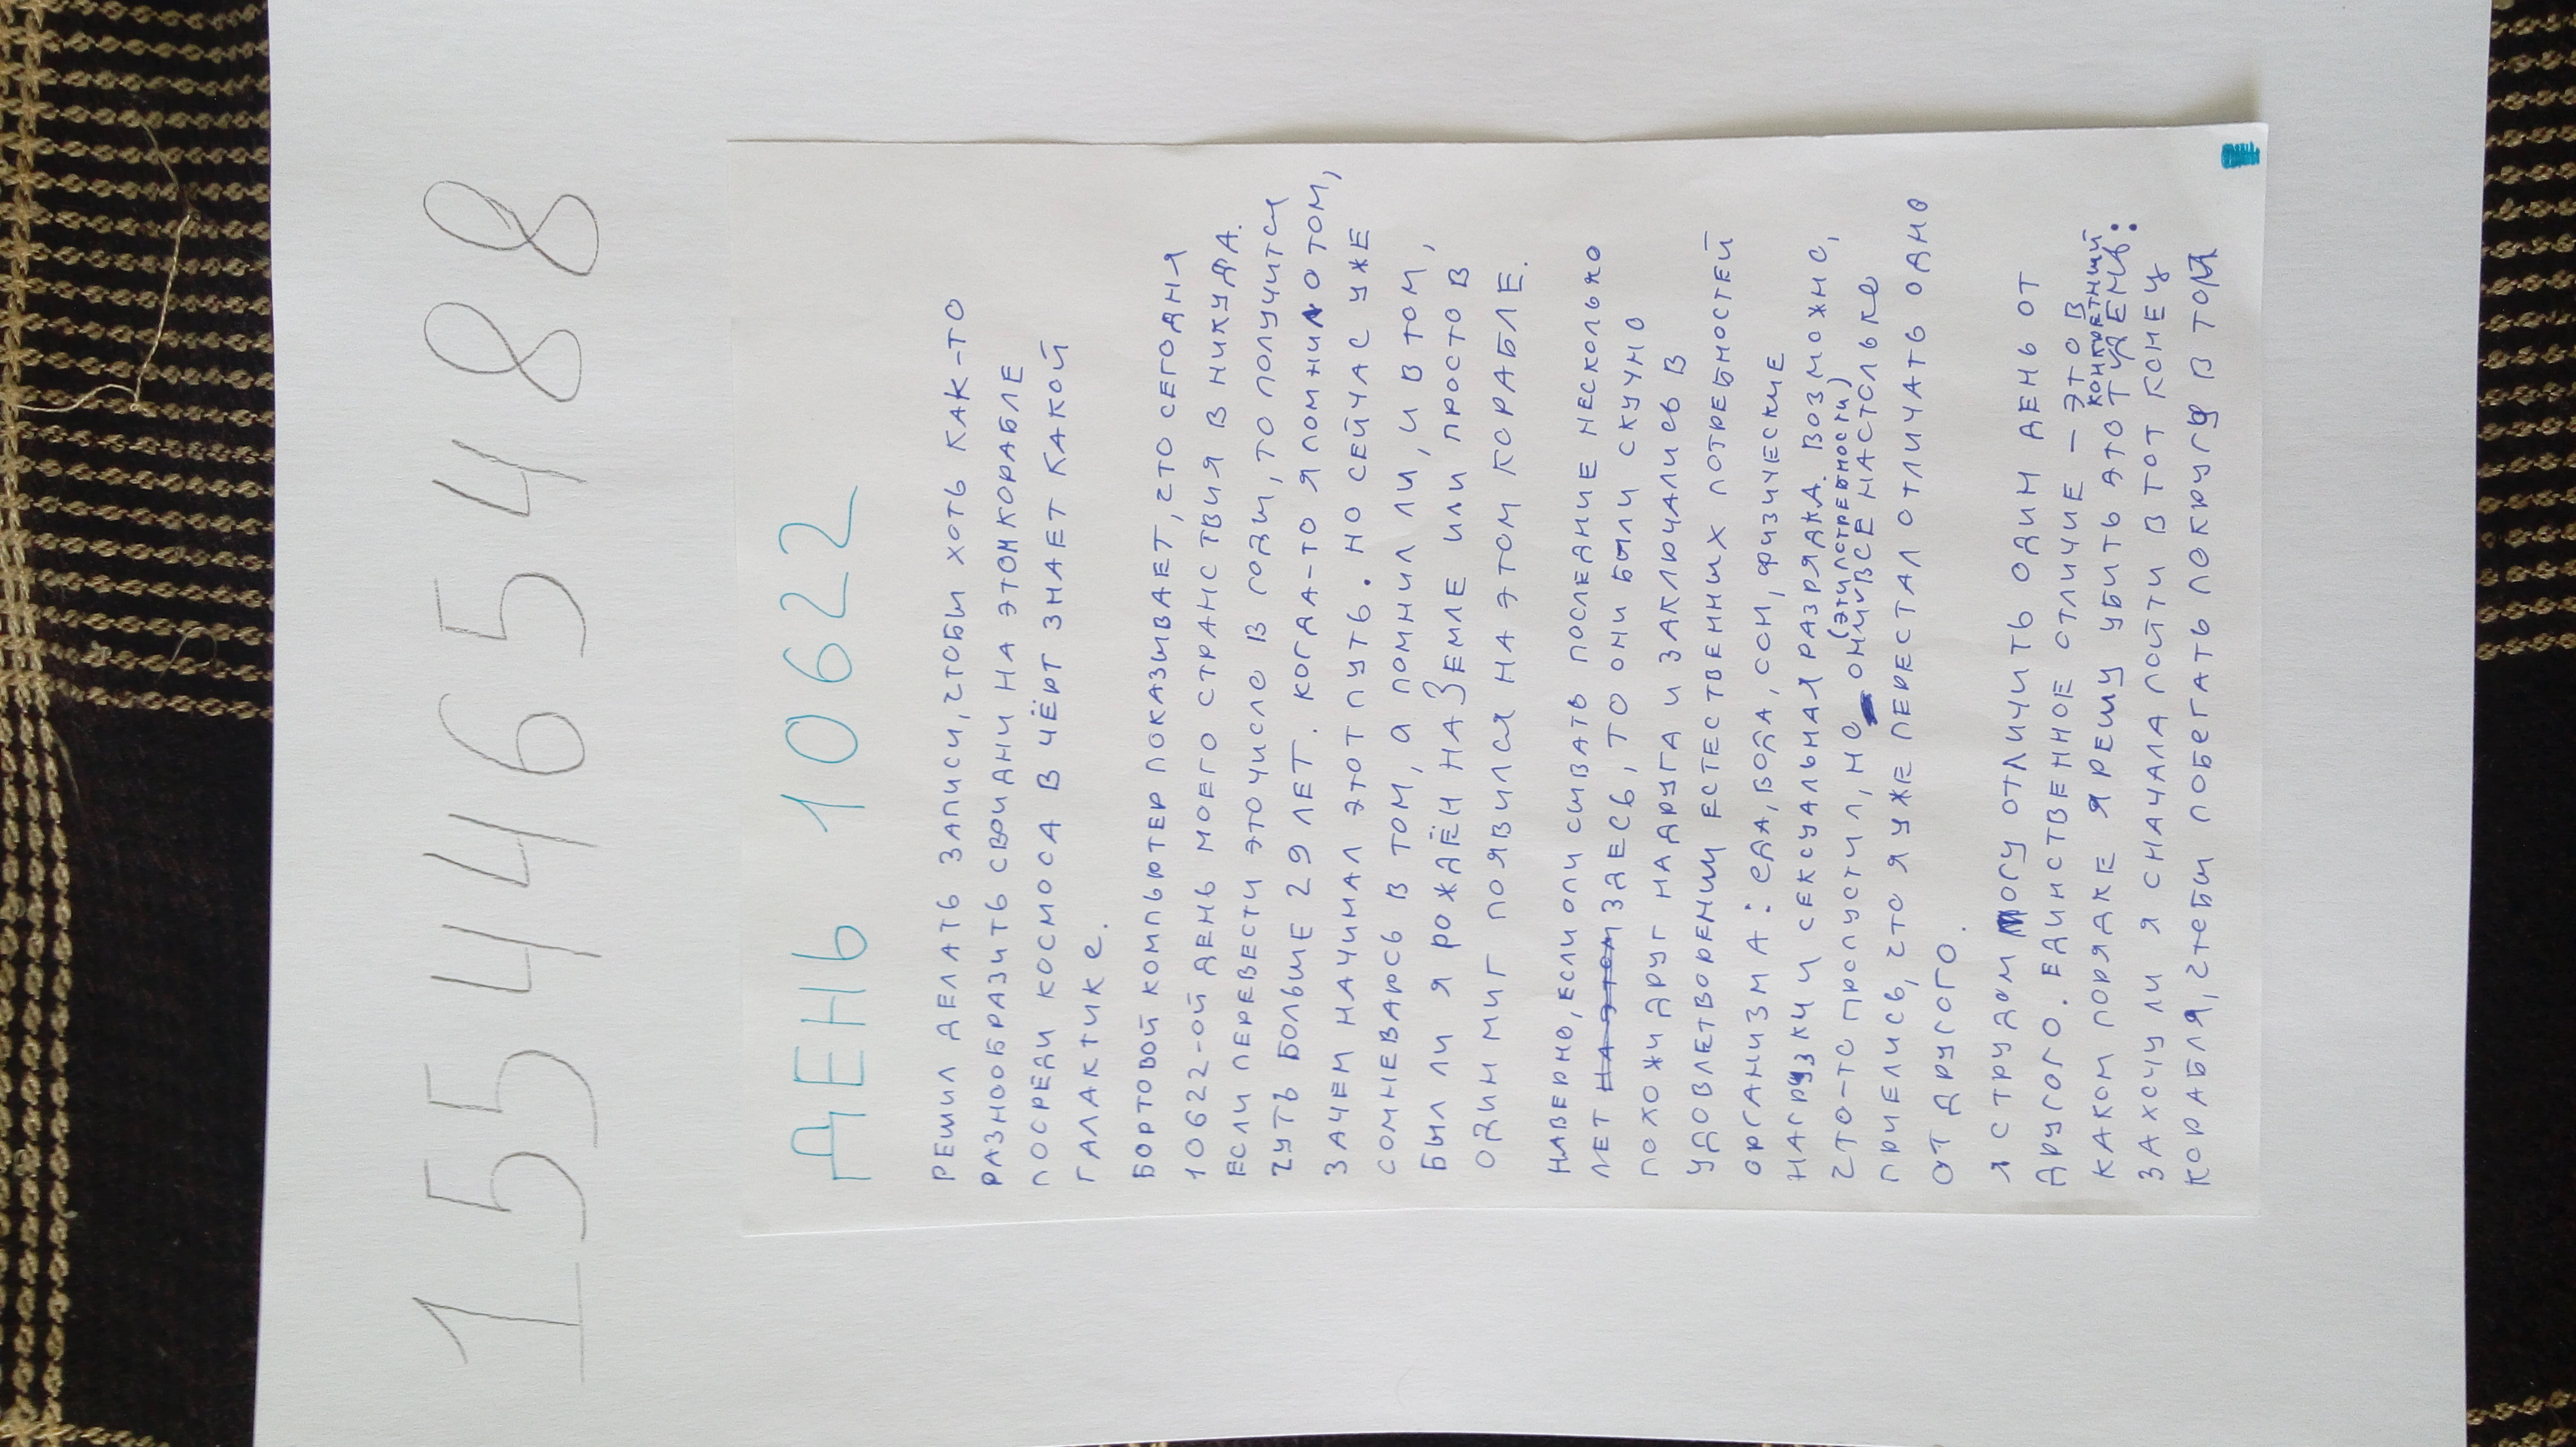 1554465488
ДЕНЬ 10622
РЕШИЛ ДЕЛАТЬ ЗАПИСИ, ЧТОБЫ ХОТЬ КАК-ТО
РАЗНООБРАЗИТЬ СВОИ ДНИ НА ЭТОМ КОРАБЛЕ
ПОСРЕДИ КОСМОСА В ЧЁРТ ЗНАЕТ КАКОЙ
ГАЛАКТИКЕ.
БОРТОВОЙ КОМПЬЮТЕР ПОКАЗЫВАЕТ, ЧТО СЕГОДНЯ
10622-ОЙ ДЕНЬ МОЕГО СТРАНСТВИЯ В НИКУДА.
ЕСЛИ ПЕРЕВЕСТИ ЭТО ЧИСЛО В ГОДЫ, ТО ПОЛУЧИТСЯ
ЧУТЬ БОЛЬШЕ 29 ЛЕТ. КОГДА-ТО Я ПОМНИЛ О ТОМ,
ЗАЧЕМ НАЧИНАЛ ЭТОТ ПУТЬ. НО СЕЙЧАС УЖЕ
СОМНЕВАЮСЬ В ТОМ, А ПОМНИЛ ЛИ, И В ТОМ,
БЫЛ ЛИ Я РОЖДЁН НА ЗЕМЛЕ ИЛИ ПРОСТО В
ОДИН МИГ ПОЯВИЛСЯ НА ЭТОМ КОРАБЛЕ.
НАВЕРНО, ЕСЛИ ОПИСЫВАТЬ ПОСЛЕДНИЕ НЕСКОЛЬКО
ЛЕТ НА ЭТОМ ЗДЕСЬ, ТО ОНИ БЫЛИ СКУЧНО
ПОХОЖИ ДРУГ НА ДРУГА И ЗАКЛЮЧАЛИСЬ В
УДОВЛЕТВОРЕНИИ ЕСТЕСТВЕННЫХ ПОТРЕБНОСТЕЙ
ОРГАНИЗМА: ЕДА, ВОДА, СОН, ФИЗИЧЕСКИЕ
НАГРУЗКИ И СЕКСУАЛЬНАЯ РАЗРЯДКА. ВОЗМОЖНО,
(ЭТИ ПОТРЕБНОСТИ)
ЧТО-ТО ПРОПУСТИЛ, НО ОНИ ВСЕ НАСТОЛЬКО
ПРИЕЛИСЬ, ЧТО Я УЖЕ ПЕРЕСТАЛ ОТЛИЧАТЬ ОДНО
ОТ ДРУГОГО.
Я С ТРУДОМ МОГУ ОТЛИЧИТЬ ОДИН ДЕНЬ ОТ
ДРУГОГО. ЕДИНСТВЕННОЕ ОТЛИЧИЕ – ЭТО В
КОНКРЕТНЫЙ
КАКОМ ПОРЯДКЕ Я РЕШУ УБИТЬ ЭТОТ ДЕНЬ:
ЗАХОЧУ ЛИ Я СНАЧАЛА ПОЙТИ В ТОТ КОНЕЦ
КОРАБЛЯ, ЧТОБЫ ПОБЕГАТЬ ПО КРУГУ В ТОМ